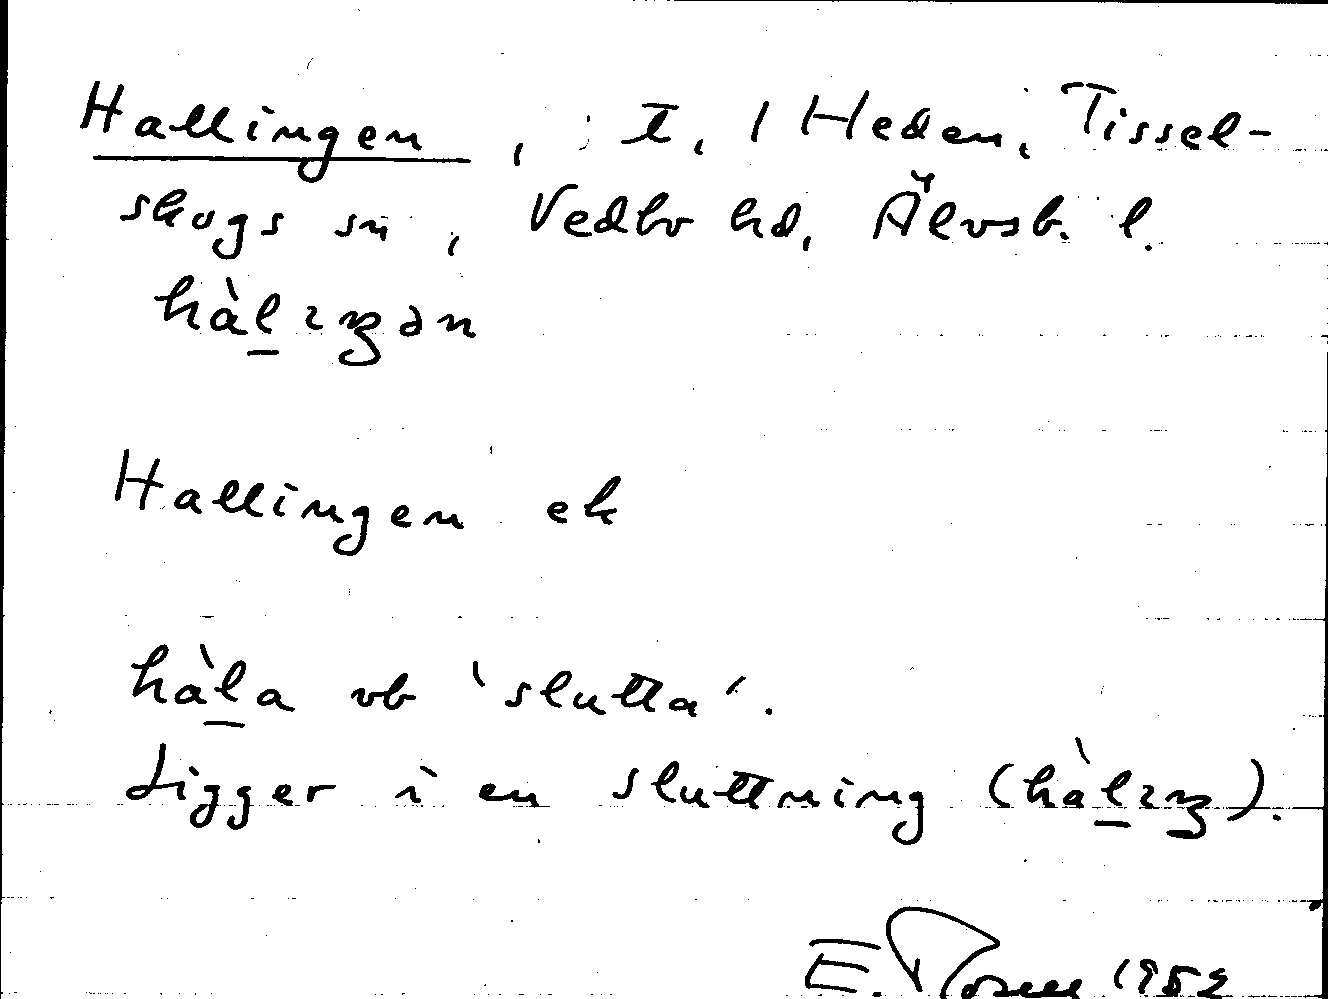 Hallingen, t, 1 Heden, Tissel-
skogs sn, Vedbo hd, Älvsb. l.
hàl̲ıŋən
Hallingen ek
hàl̲a vb 'slutta'.
Ligger i en sluttning (hàl̲ıŋ).
E. 1952